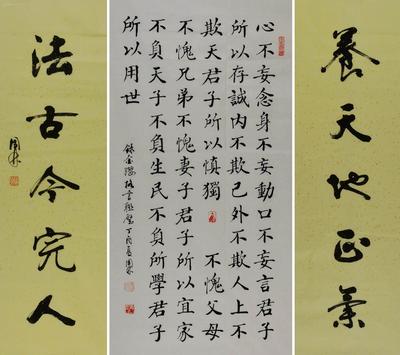 養天地正氣
心不妄念身不妄動口不妄言君子
所以存誠内不欺己外不欺人上不
欺天君子所以慎獨 不愧父母
不愧兄弟不愧妻子君子所以宜家
不負天子不負生民不負所學君子
所以用世
錄金纓格言聯璧丁酉夏周
法古今完人
周林